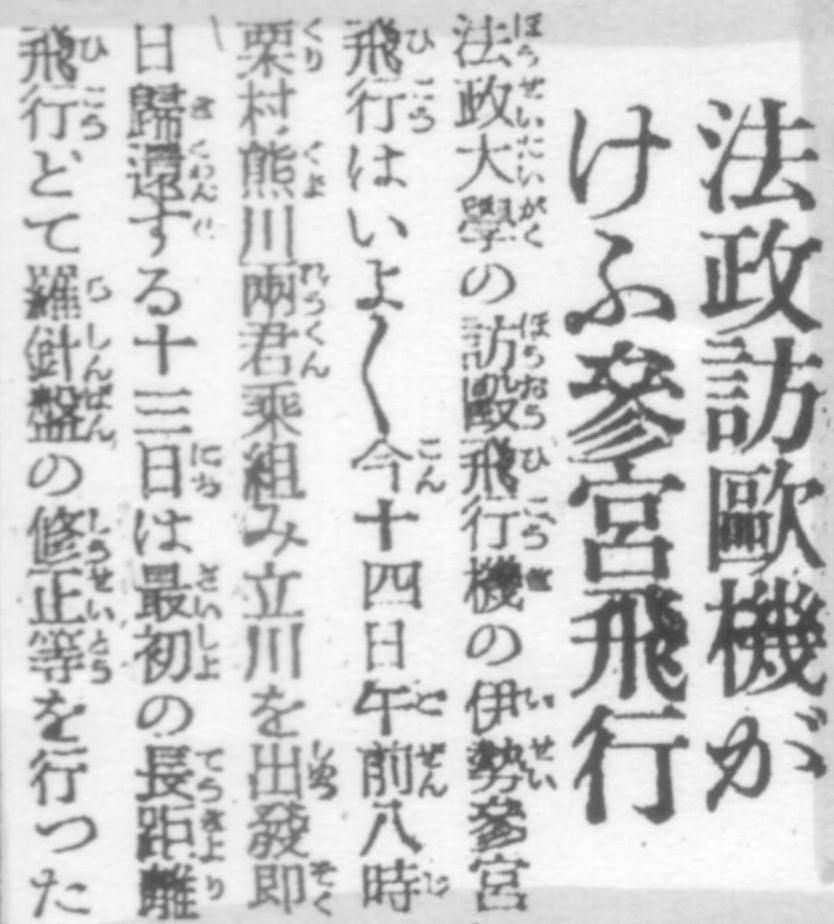 法政訪歐機が
けふ參宮飛行
法政大學の訪歐飛行機の伊勢參宮
飛行はいよ〱今十四日午前八時
栗村、熊川兩君乘組み立川を出發即
日歸還する十三日は最初の長距離
飛行とて羅針盤の修正等を行つた